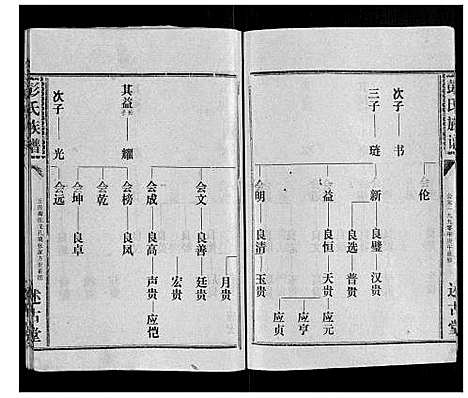 彭氏族谱
述古堂
次子 书
会伦
三子 琏
会新 良璧 汉贵
良选 普贵
会益 良恒 天贵 应元
应亨
应贞
会朗 良清 玉贵
其益 长子 耀
会文 良善 廷贵
月贵
宏贵
会成 良高 声贵 应恺
会榜 良凤
会乾
会坤 良卓
次子 光
会远
彭氏族谱
述古堂